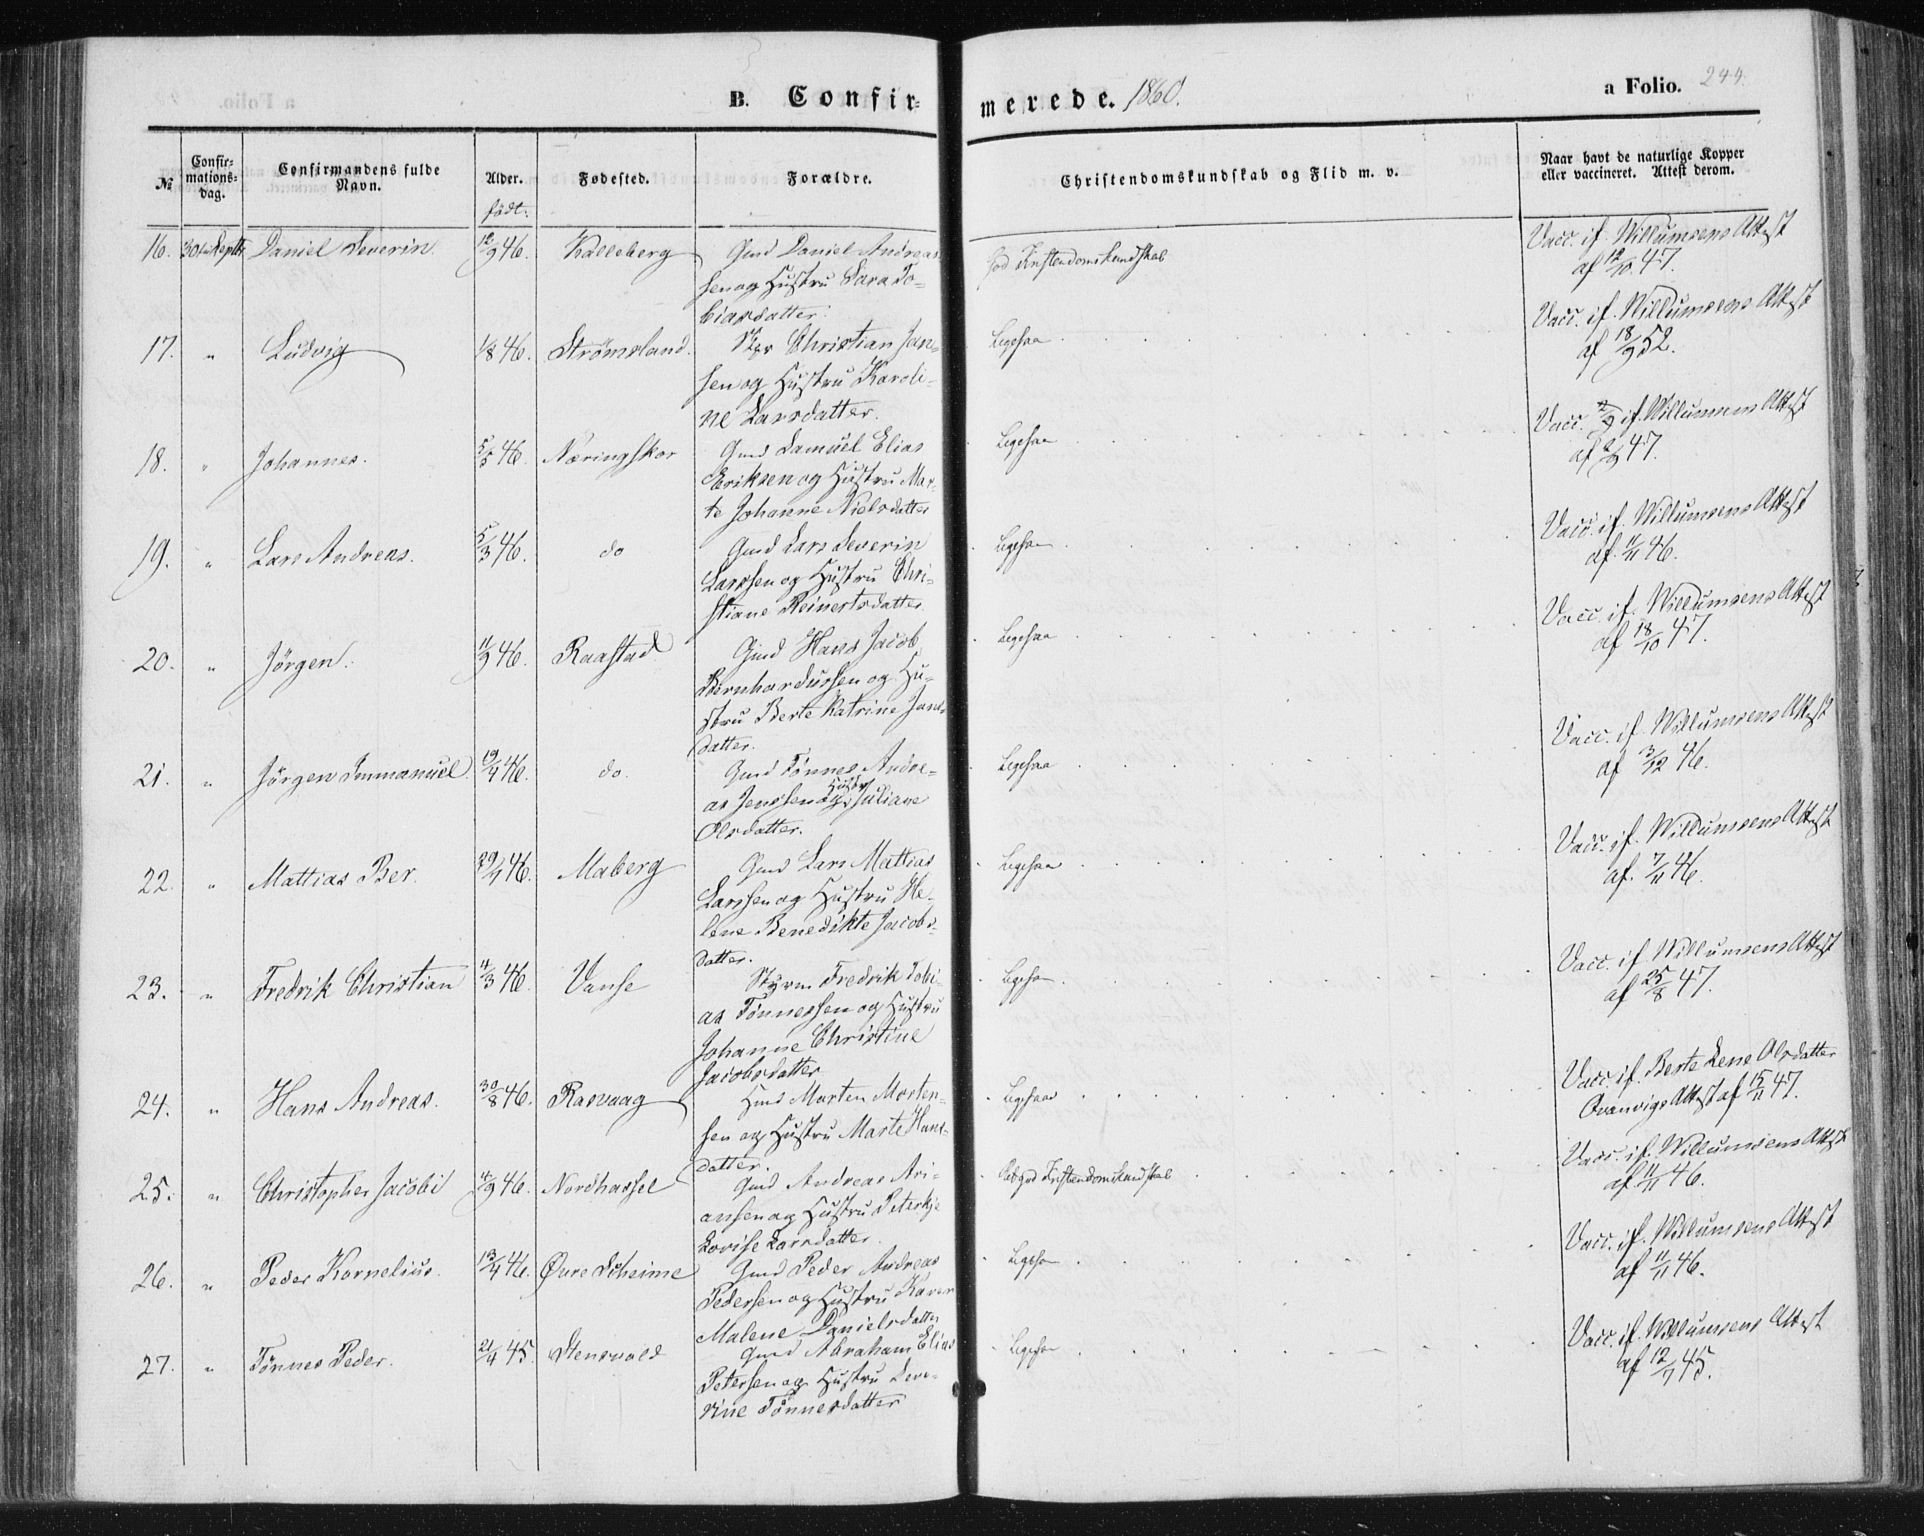 B. Confir-
merede. 1860.
a Folio. 244.
№
Confir-
mations-
dag.
Confirmandens fulde
Navn.
Alder.
født.
Fødested.
Forældre.
Christendomskundskab og Flid m. v.
Naar havt de naturlige Kopper
eller vaccineret. Attest derom.
16. 30te Septbr Daniel Severin 12/9 46. Kalleberg Gmd Daniel Andreas-
sen og Hustru Sara To-
biasdatter.
god Kristendomskundskab
Vacc. if. Willumsens Attest
af 12/10 47.
17. " Ludvig 1/8 46. Strømsland. Christian Jan-
sen og Hustru Karoli-
ne Larsdatter.
Ligesaa
Vacc. if. Willumsens Attest
af 18/9 52.
18. " Johannes. 5/5 46. Næringskor Gmd Samuel Elias
Eriksen og Hustru Mar-
te Johanne Nielsdatter
Ligesaa
Vacc. if. Willumsens Attest
af 47.
19. " Lars Andreas. 5/3 46. do Gmd Lars Severin
Larssen og Hustru Chri-
stiane Reinertsdatter.
Ligesaa
Vacc. if. Willumsens Attest
af 11/11 46.
20. " Jörgen. 11/9 46. Raastad Gmd Hans Jacob
Bernhardussen og Hu-
stru Berte Katrine Jans-
datter.
Ligesaa
Vacc. if. Willumsens Attest
af 18/10 47.
21. " Jörgen Immanuel. 19/4 46. do. Gmd Tönnes Andre-
as Jenssen og Hustr Juliane
Olsdatter.
Ligesaa
Vacc. if. Willumsens Attest
af 3/12 46.
22. " Mattias Ber. 29/4 46. Maberg Gmd Lars Mattias
Larssen og Hustru He-
lene Benedikte Jacobs-
datter.
Ligesaa
Vacc. if. Willumsens Attest
af. 7/11 46.
23. " Fredrik Christian 4/3 46. Vanse Styrm Fredrik Tobi-
as Tönnessen og Hustru
Johanne Christine
Jacobsdatter
Ligesaa
Vacc. if Willumsens Attest
af 25/8 47.
24. " Hans Andreas. 30/8 46. Rasvaag Hmd Morten Morten-
sen og Hustru Marte Hans-
datter.
Ligesaa
Vacc. if. Berte Lene Olsdatter
Attest af 15/11 47.
25. " Christopher Jacobi 4/9 46. Nordhassel Gmd Andreas Ari-
ansen og Hustru Peterkje
Lovise Larsdatter.
god Kristendomskundskab
Vacc. if. Willumsens Attest
af 11/11 46.
26. " Peder Kornelius. 13/4 46. Øvre Skeime Gmd Peder Andreas
Pedersen og Hustru Karen
Malene Danielsdatter
Ligesaa
Vacc. if. Willumsens Attest
af 11/11 46.
27. " Tønnes Peder. 21/4 45. Stensvold Gmd Abraham Elias
Petersen og Hustru Seve-
rine Tönnesdatter
Ligesaa
Vacc. if. Willumsens Attest
af 12/9 45.